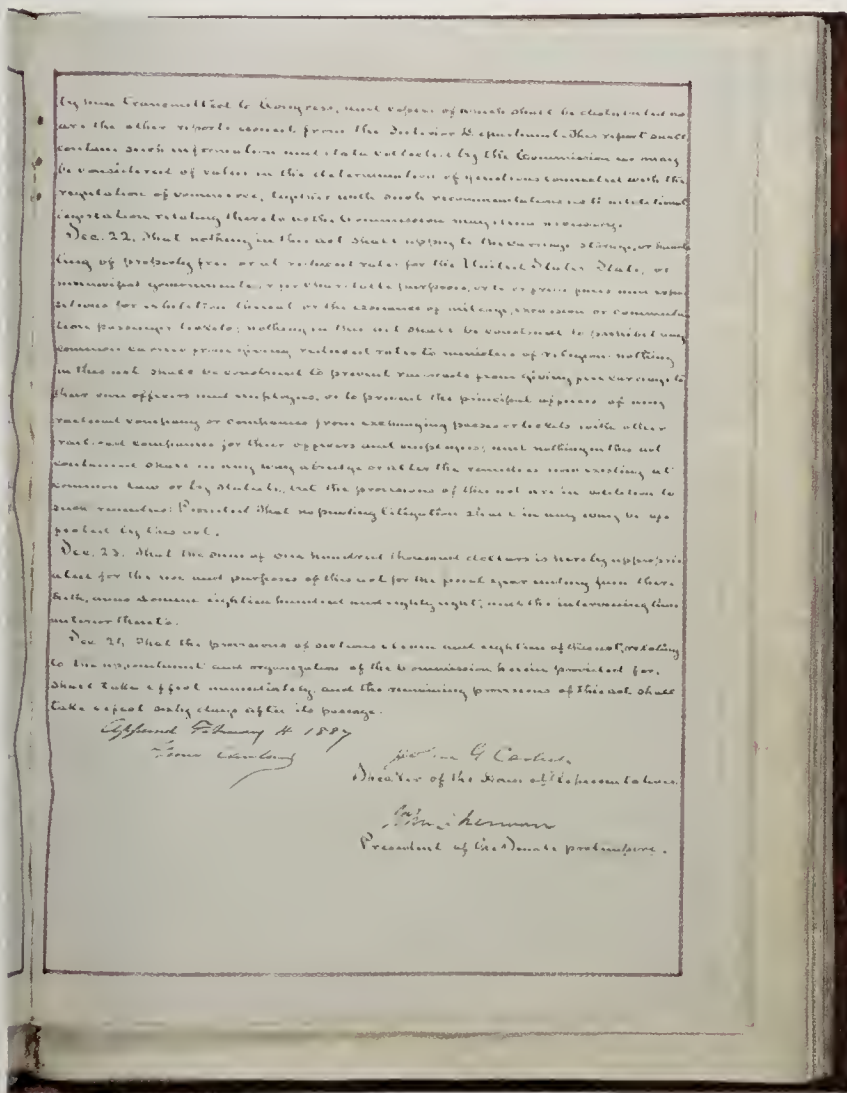 by him transmitted to Congress, and copies of which shall be distributed as
are the other reports issued from the Interior Department. This report shall
contain such information and data collected by the Commission as may
be considered of value in the determination of questions connected with the
regulation of commerce, together with such recommendations as to additional
legislation relating thereto as the Commission may deem necessary.
Sec. 22. That nothing in this act shall apply to the carriage, storage, or hand-
ling of property free or at reduced rates for the United States, State, or
municipal governments, or for charitable purposes, or to or from fairs and expo-
sitions for exhibition thereat, or the issuance of mileage, excursion, or commuta-
tion passenger tickets; nothing in this act shall be construed to prohibit any
common carrier from giving reduced rates to ministers of religion; nothing
in this act shall be construed to prevent railroads from giving free carriage to
their own officers and employees, or to prevent the principal officers of any
railroad company or companies from exchanging passes or tickets with other
railroad companies for their officers and employees; and nothing in this act
contained shall in any way abridge or alter the remedies now existing at
common law or by statute, but the provisions of this act are in addition to
such remedies: Provided That no pending litigation shall in any way be af-
fected by this act.
Sec. 23. That the sum of one hundred thousand dollars is hereby appropri-
ated for the use and purposes of this act for the fiscal year ending June thir-
tieth, anno Domini eighteen hundred and eighty eight, and the intervening time
anterior thereto.
Sec. 24. That the provisions of sections eleven and eighteen of this act, relating
to the appointment and organization of the Commission herein provided for,
shall take effect immediately, and the remaining provisions of this act shall
take effect sixty days after its passage.
Approved February 4 1887
Grover Cleveland
John G Carlisle
Speaker of the House of Representatives.
John Sherman
President of the Senate pro tempore.